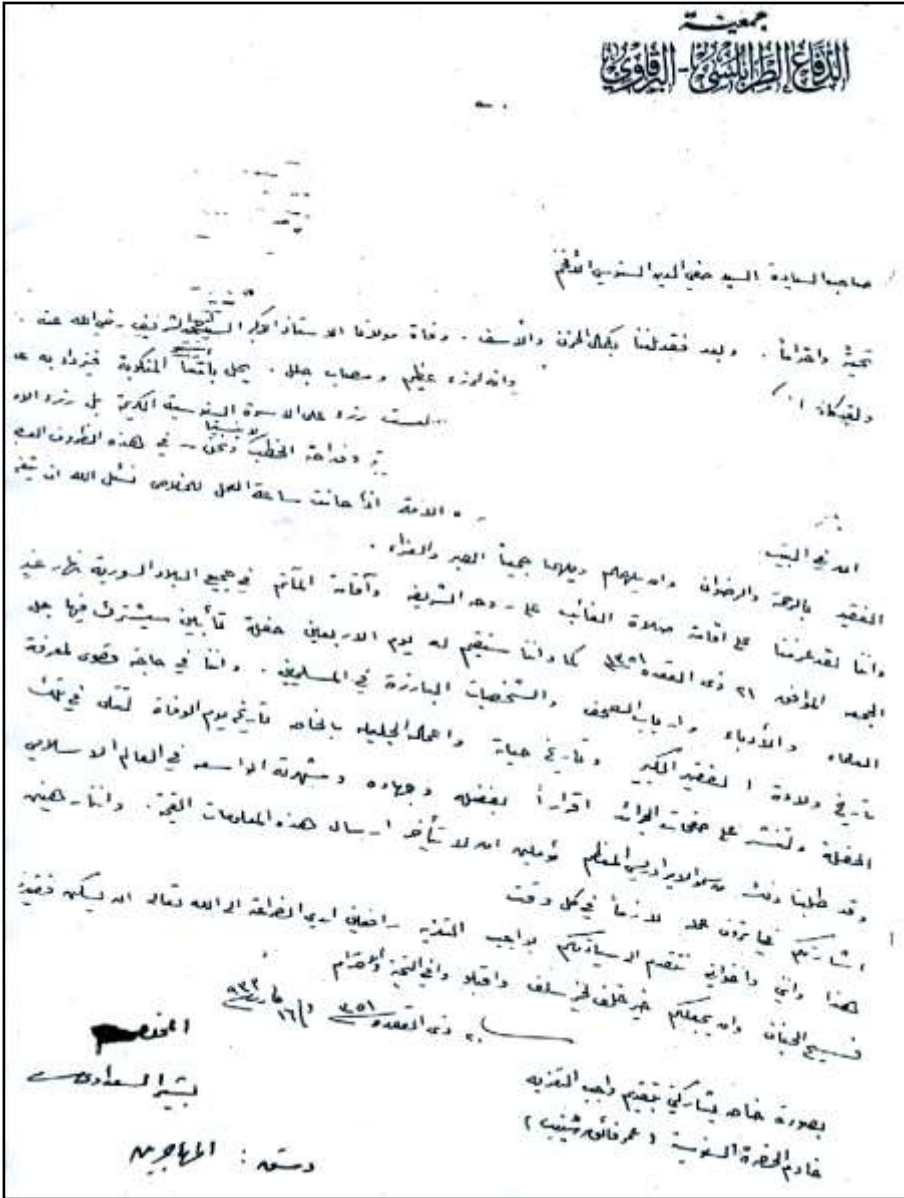 جمعية
الدفاع الطرابلسي - البرقاوي
صاحب السيادة السيد صفي الدين السنوسي الأفخم
تحية واحتراماً . وبعد فقد بلغنا بكمال الحزن والأسف . وفاة مولانا الاستاذ الاكبر السيد الشريف رضي الله عنه .
ولقد كان
وانه لرزء عظيم ومصاب جلل . يحل بأمتنا المنكوبة
ليست رزء على الاسرة السنوسية الكريمة بل رزء
وفداحة الخطب ونحن في هذه الظروف
الامة اذا حانت ساعة العمل للخلاص نسئل الله ان
الفقيد بالرحمة والرضوان وان يلهمكم ويلهمنا جميعاً الصبر والعزاء .
واننا لقد عزمنا على اقامة صلاة الغائب على روحه الشريفة واقامة المآتم في جميع البلاد السورية نهار غد
الجمعه الموافق ٢١ ذى القعدة ١٣٥١ كما واننا سنقيم له يوم الاربعين حفلة تأبين سيشترك فيها جل
العلماء والأدباء وارباب الصحف والشخصيات البارزة في المسلمين . واننا في حاجة قصوى لمعرفة
تاريخ ولادة الفقيد الكبير وتاريخ حياته واعماله الجليله بالخاصه تاريخ يوم الوفاة لتتلى في تلك
الحفلة ولتنشر على صفحات الجرائد اقراراً بفضله وجهاده وشهرته الواسعه في العالم الاسلامي
وقد طلبنا ذلك من سمو الامير ادريس المعظم مؤملين ان لا تتأخر ارسال هذه المعلومات القيمة . واننا رهين
اشارتكم فيما ترون عمله لازماً في كل وقت
هذا واني واخواني نتقدم الى سيادتكم بواجب التعزيه رافعين ايدي الضراعة الى الله تعالى ان يسكن فقيدنا
فسيح الجنان وان يجعلكم خير خلف لخير سلف واقبلوا وافر التحية والاحترام
٢٠ ذى القعدة ١٣٥١ و ١٦ مارس ٩٣٣
المخلص
بشير السعداوي
دمشق : المهاجرين
بصورة خاصه يشاركني بتقديم واجب التعزيه
خادم الحضرة السنوسية ( عمر فائق شنيب )